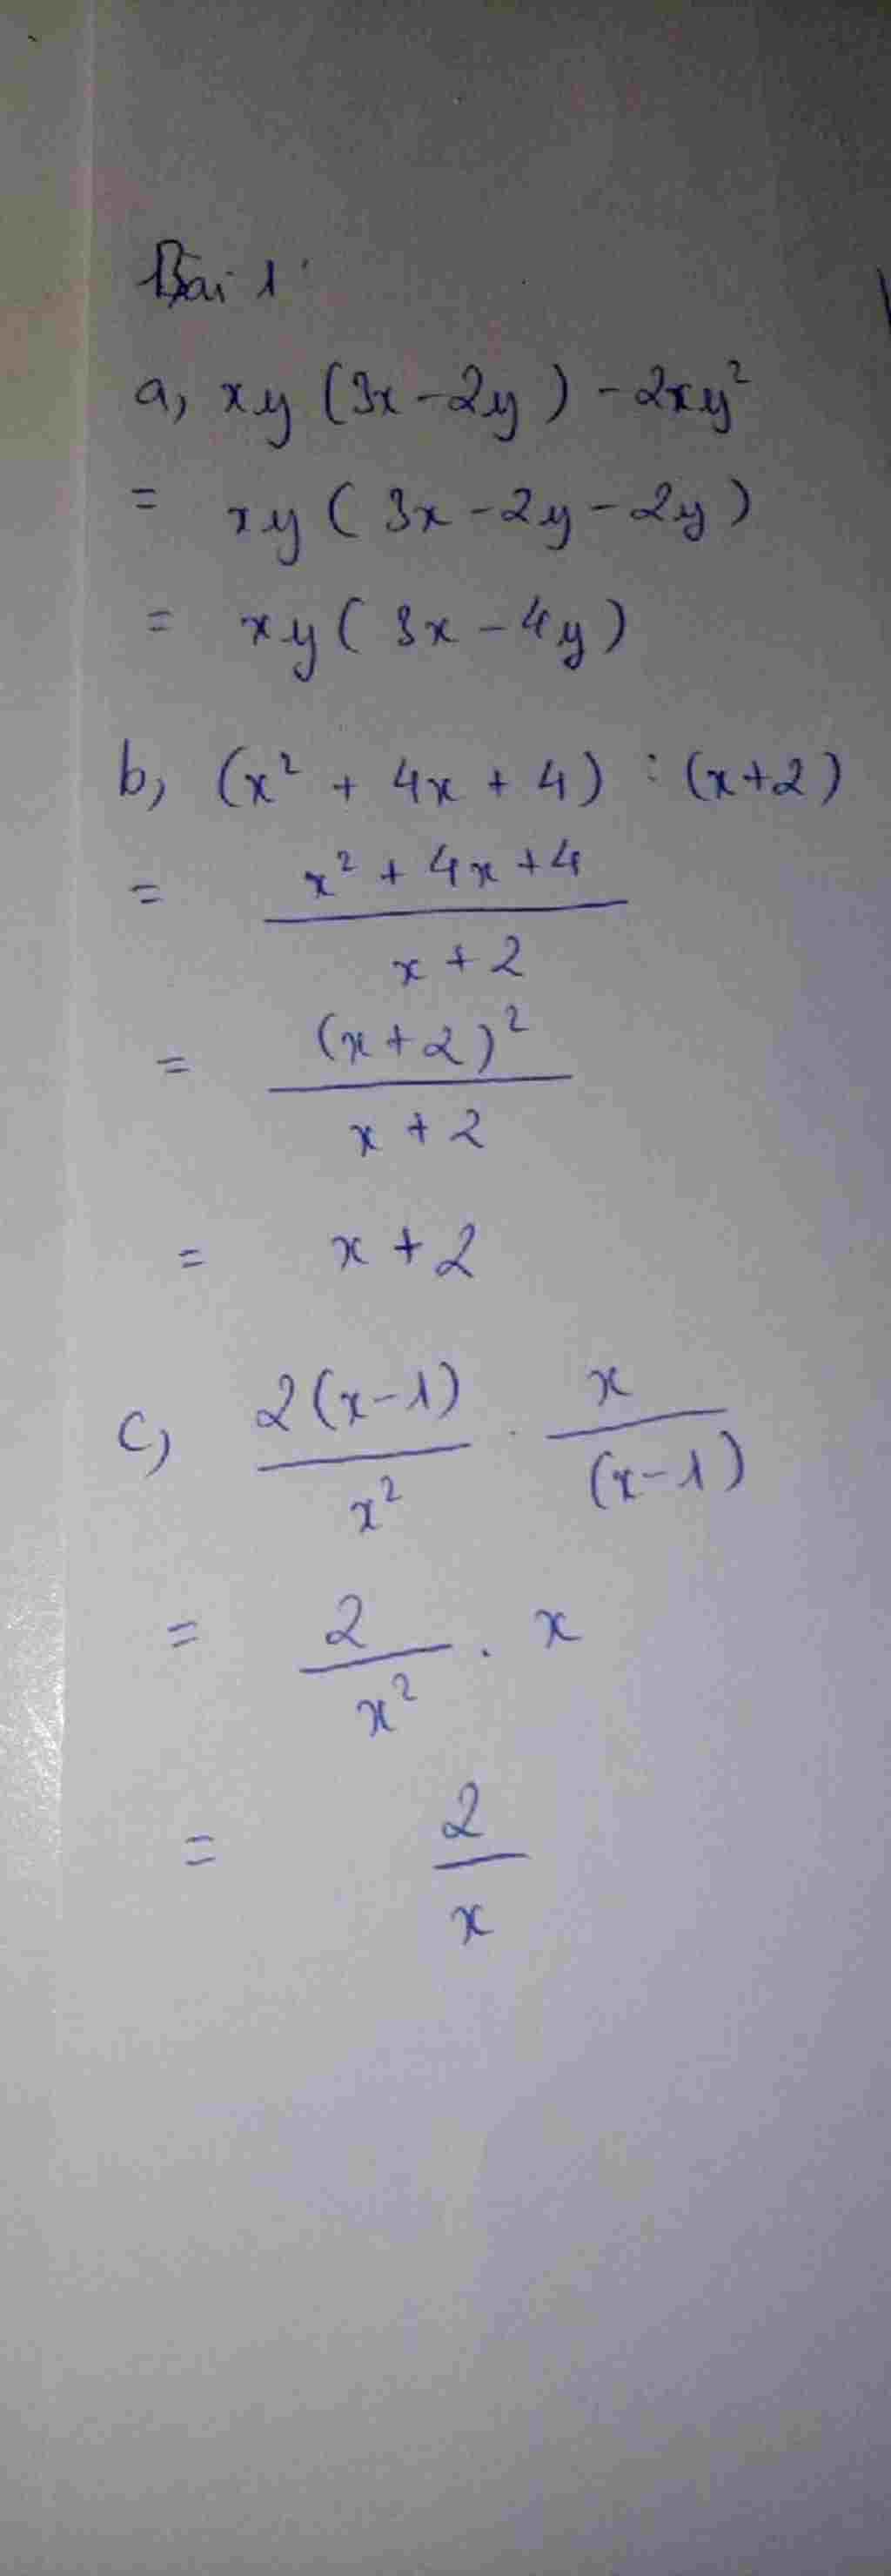 Bài 1
a, xy (3x - 2y) - 2xy²
= xy ( 3x - 2y - 2y )
= xy ( 3x - 4y )
b, (x² + 4x + 4) : (x+2)
= \frac{x² + 4x + 4}{x + 2}
= \frac{(x+2)²}{x + 2}
= x + 2
c, \frac{2(x-1)}{x²} . \frac{x}{(x-1)}
= \frac{2}{x²} . x
= \frac{2}{x}